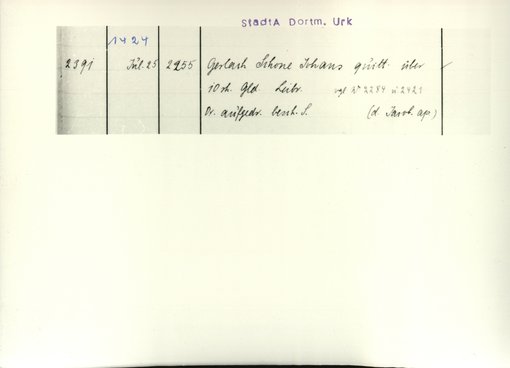 StadtA Dortm. Urk
1424
2391 Jul. 25 2955 Gerlach Schone Johans quitt. über
10 rh. Gld. Leibr. vgl. No 2284 u 2421
Or. aufgedr. besch. S. (d. Jacob. ap.)